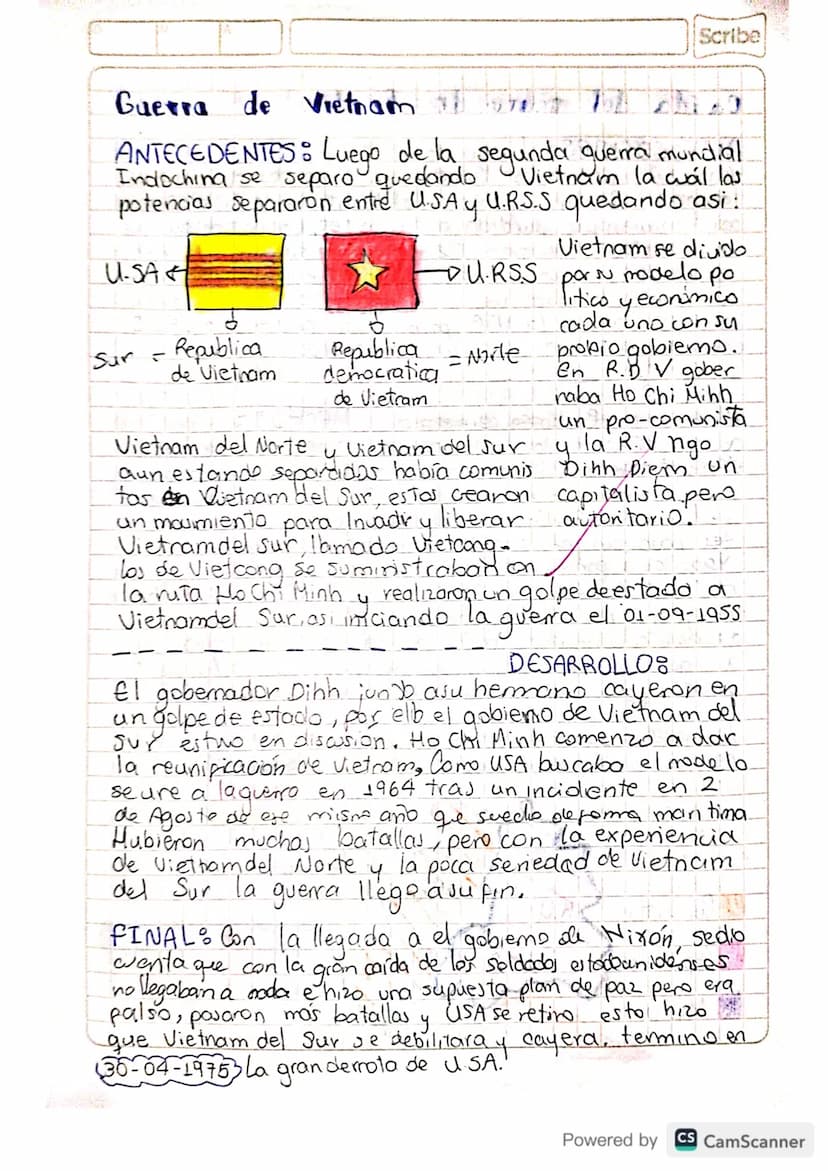 Scribe
Guerra de Vietnam
ANTECEDENTES: Luego de la segunda guerra mundial
Indochina se separo quedando Vietnam la cuál las
potencias separaron entre U.S.A y U.R.S.S quedando asi:
U.SA
U.R.S.S
Sur = Republica
de Vietnam
Republica = Norte
democratica
de Vietnam
Vietnam se divido
por su modelo po
litico y económico
cada uno con su
propio gobierno.
En R.D V gober
naba Ho Chi Mihh
un pro-comunista
y la R.V Ngo
Dihh Diem un
capitalista pero
autoritario.
Vietnam del Norte y Vietnam del sur
aun estando separadas había comunis
tas en Vietnam del Sur, estos crearon
un movimiento para Invadir y liberar
Vietnam del sur, llamado Vietcong.
los de Vietcong se suministraban en
la ruta Ho Chi Minh y realizaron un golpe de estado a
Vietnam del Sur, asi iniciando la guerra el 01-09-1955
DESARROLLO:
El gobernador Dihh junto a su hermano cayeron en
un golpe de estado, por ello el gobierno de Vietnam del
Sur estuvo en discusión. Ho Chi Minh comenzo a dar
la reunificación de Vietnam, Como USA buscaba el modelo
se une a la guerra en 1964 tras un incidente en 2
de Agosto de ese mismo año que sucedio de forma maritima
Hubieron muchas batallas, pero con la experiencia
de Vietnam del Norte y la poca seriedad de Vietnam
del Sur la guerra llego a su fin.
FINAL: Con la llegada a el gobierno de Nixón, se dio
cuenta que con la gran caída de los soldados estadounidenses
no llegaban a nada e hizo una supuesta plan de paz pero era
falso, pasaron más batallas y USA se retiro esto hizo
que Vietnam del Sur se debilitara y cayera, termino en
30-04-1975 La gran derrota de U.S.A.
Powered by CS CamScanner